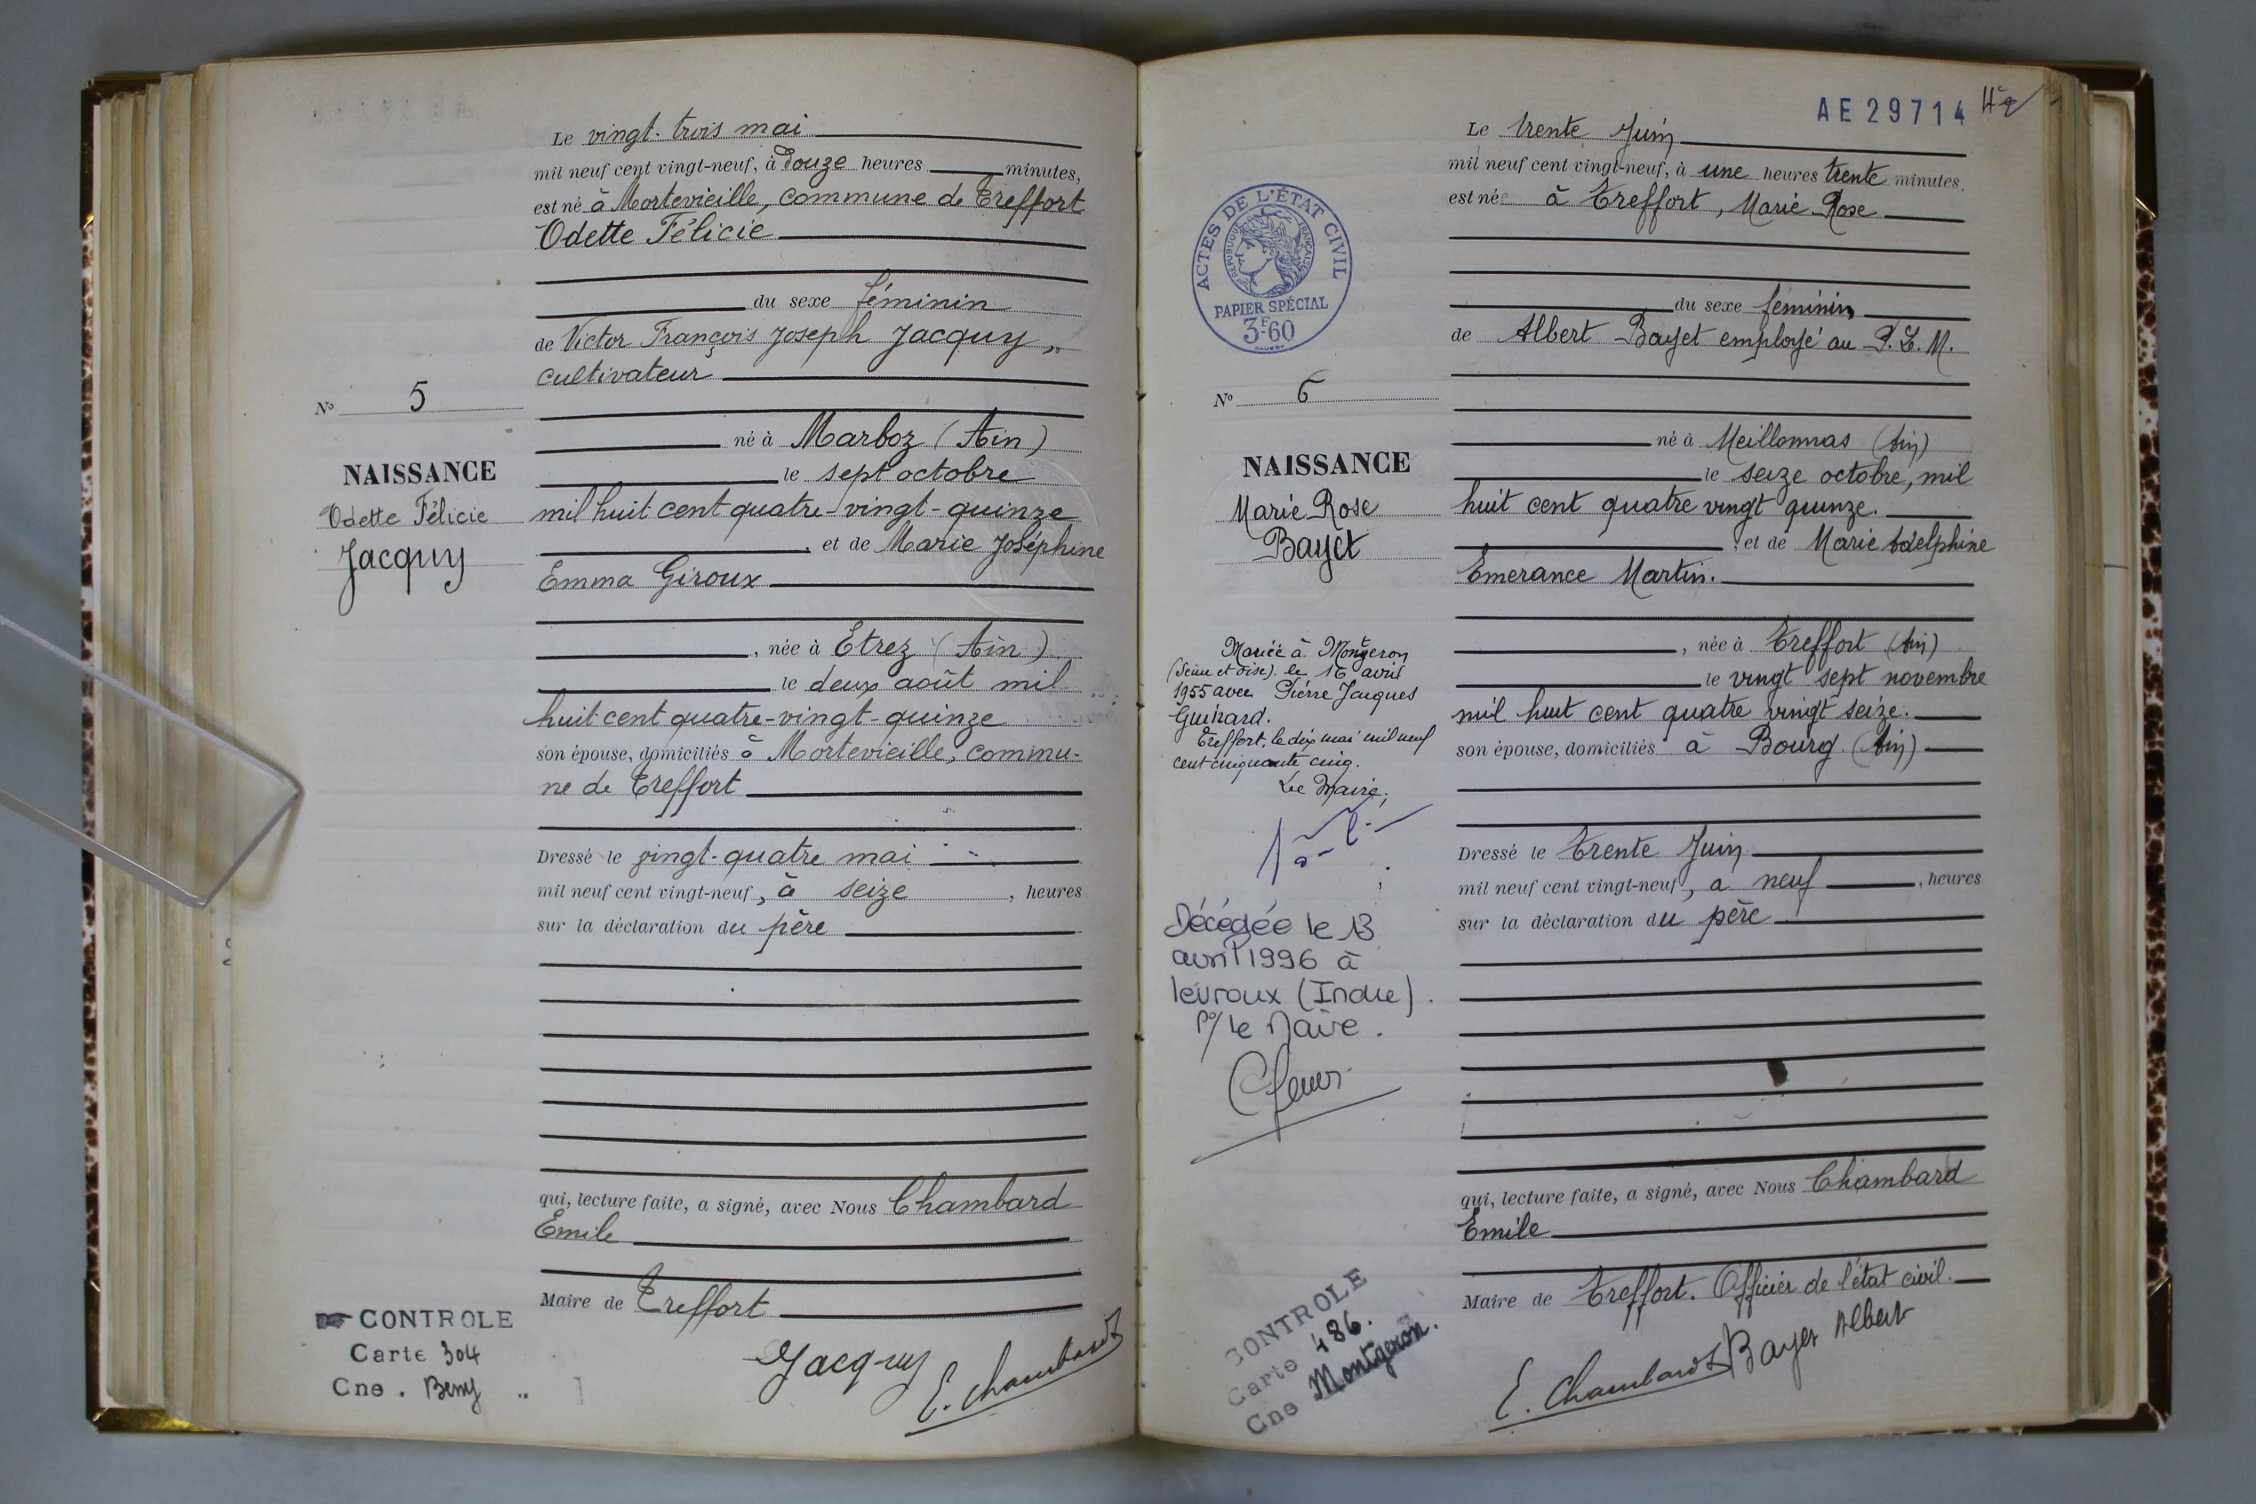 Le vingt-trois mai
mil neuf cent vingt-neuf, à douze heures minutes,
est né à Mortevieille, commune de Treffort
Odette Félicie
du sexe féminin
de Victor François Joseph Jacquy,
cultivateur
né à Marboz (Ain)
le sept octobre
mil huit cent quatre-vingt-quinze
, et de Marie Joséphine
Emma Giroux
, née à Etrez (Ain)
le deux août mil
huit cent quatre-vingt-quinze
son épouse, domiciliés à Mortevieille, commu-
ne de Treffort
Dressé le vingt-quatre mai
mil neuf cent vingt-neuf, à seize , heures
sur la déclaration du père
qui, lecture faite, a signé, avec Nous Chambard
Emile
Maire de Treffort
Jacquy
E. Chambard
No 5
NAISSANCE
Odette Félicie
Jacquy
CONTROLE
Carte 304
Cne . Beny
AE 29714
Le trente Juin
mil neuf cent vingt-neuf, à une heures trente minutes,
est née à Treffort, Marie Rose
du sexe féminin
de Albert Bayet employé au P.L.M.
né à Meillonnas (Ain)
le seize octobre, mil
huit cent quatre vingt quinze.
, et de Marie Adelphine
Emerance Martin.
, née à Treffort (Ain)
le vingt sept novembre
mil huit cent quatre vingt seize.
son épouse, domiciliés à Bourg (Ain)
Dressé le trente Juin
mil neuf cent vingt-neuf, a neuf , heures
sur la déclaration du père
qui, lecture faite, a signé, avec Nous Chambard
Emile
Maire de Treffort. Officier de l'état civil.
E. Chambard Bayet Albert
ACTES DE L'ÉTAT CIVIL
RÉPUBLIQUE FRANÇAISE
PAPIER SPÉCIAL
3F60
No 6
NAISSANCE
Marie Rose
Bayet
Mariée à Montgeron
(Seine et Oise) le 16 avril
1955 avec Pierre Jacques
Guinard.
Treffort, le dix mai mil neuf
cent cinquante cinq.
Le Maire,
Décédée le 13
avril 1996 à
levroux (Indre).
Po/ Le Maire.
CONTROLE
Carte 486.
Cne Montgeron.